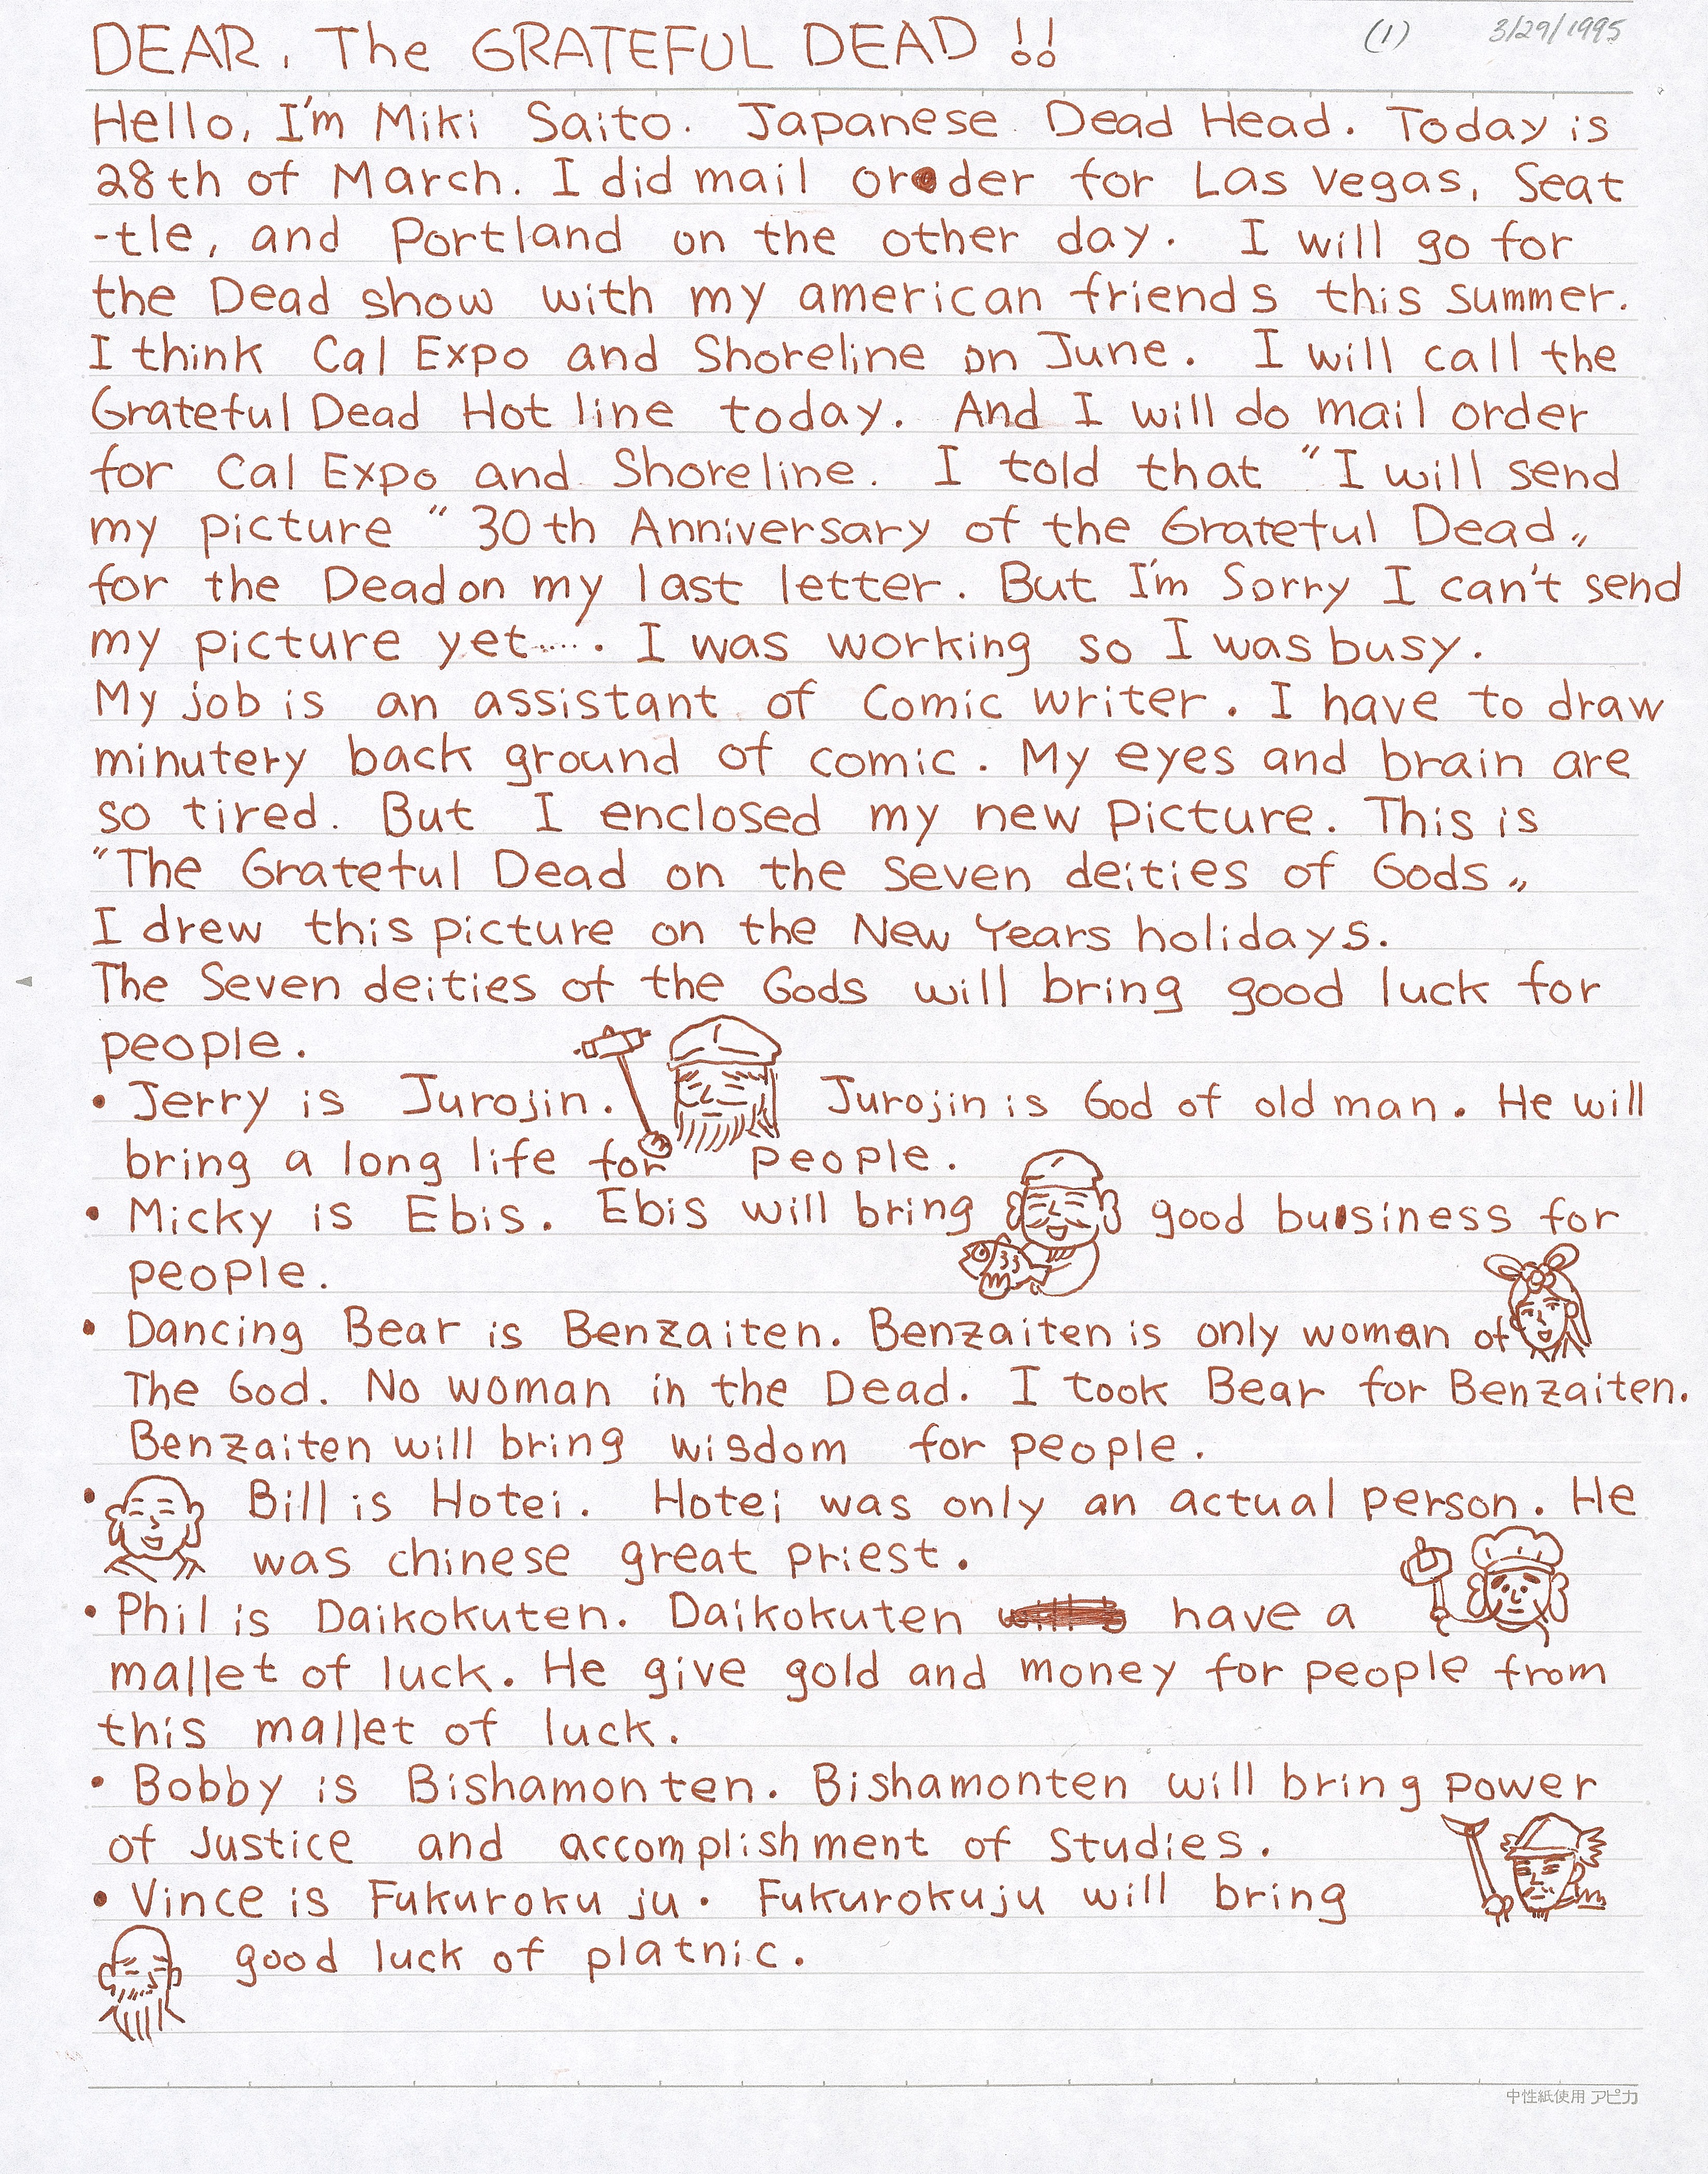 DEAR, The GRATEFUL DEAD !! (1) 3/29/1995
Hello, I'm Miki Saito. Japanese Dead Head. Today is
28th of March. I did mail order for Las Vegas, Seat
-tle, and Portland on the other day. I will go for
the Dead show with my american friends this summer.
I think Cal Expo and Shoreline on June. I will call the
Grateful Dead Hot line today. And I will do mail order
for Cal Expo and Shoreline. I told that "I will send
my picture " 30th Anniversary of the Grateful Dead„
for the Dead on my last letter. But I'm Sorry I can't send
my picture yet...... I was working so I was busy.
My job is an assistant of Comic writer. I have to draw
minutery back ground of comic. My eyes and brain are
so tired. But I enclosed my new picture. This is
"The Grateful Dead on the Seven deities of Gods„
I drew this picture on the New Years holidays.
The Seven deities of the Gods will bring good luck for
people.
• Jerry is Jurojin. Jurojin is God of old man. He will
bring a long life for people.
• Micky is Ebis. Ebis will bring good business for
people.
• Dancing Bear is Benzaiten. Benzaiten is only woman of
The God. No woman in the Dead. I took Bear for Benzaiten.
Benzaiten will bring wisdom for people.
• Bill is Hotei. Hotei was only an actual person. He
was chinese great priest.
• Phil is Daikokuten. Daikokuten have a
mallet of luck. He give gold and money for people from
this mallet of luck.
• Bobby is Bishamonten. Bishamonten will bring power
of Justice and accomplishment of Studies.
• Vince is Fukuroku ju. Fukurokuju will bring
good luck of platnic.
中性紙使用 アピカ